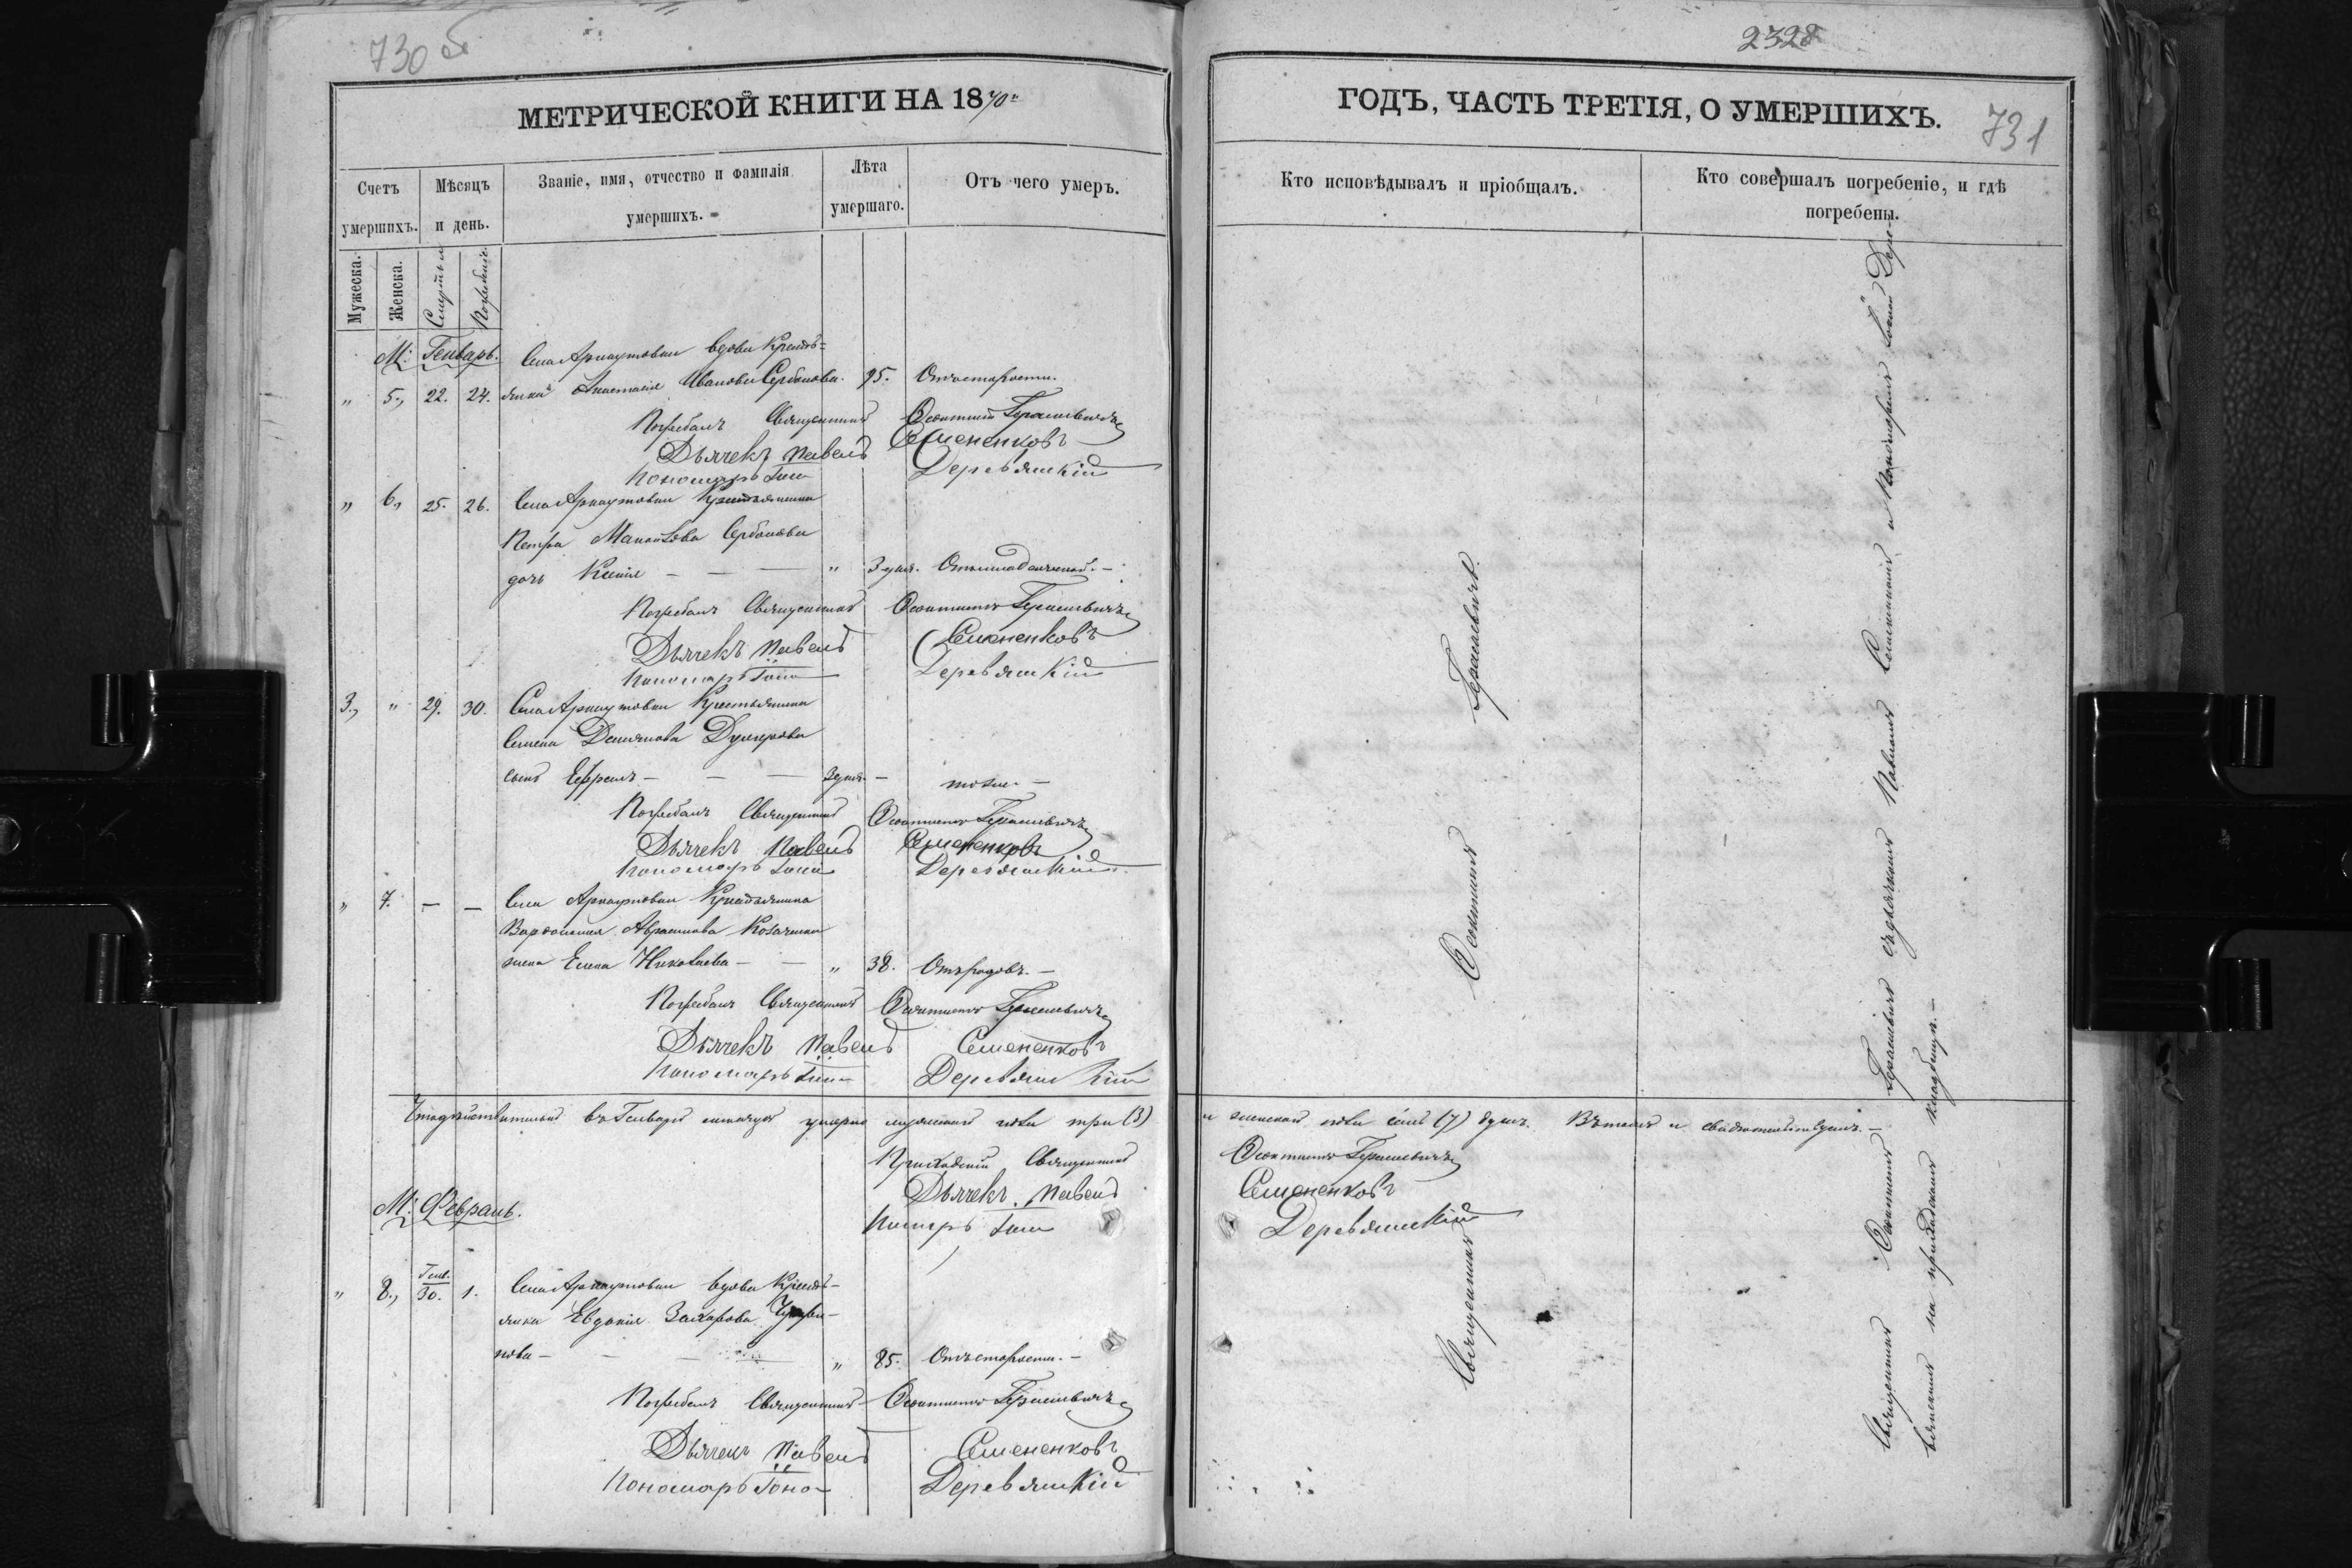 730 об
МЕТРИЧЕСКОЙ КНИГИ НА 1870й
Счетъ умершихъ.
Мѣсяцъ и день.
Званіе, имя, отчество и фамилія умершихъ.
Лѣта умершаго.
Отъ чего умеръ.
Мужеска.
Женска.
Смерти
Погребенія
М: Генварь.
Села Арнаутовки вдова Кресть=
„ 5., 22. 24. янка Анастасія Иванова Сербинова. 95. Отъ старости.
Погребалъ Священникъ Герасимовичъ
Дьячекъ Павелъ Семененковъ
Пономарь Деревянскій
„ 6., 25. 26. Села Арнаутовки Крестьянина
Петра Сербинова
дочь Ксенія — — — „ 3 дня. Отъ младенческой. —
Погребалъ Священникъ Герасимовичъ
Дьячекъ Павелъ Семененковъ
Пономарь Деревянскій
3., „ 29. 30. Села Арнаутовки Крестьянина
Семена
сынъ Ефремъ — — — 3 дня. — тоже. —
Погребалъ Священникъ Герасимовичъ
Дьячекъ Павелъ Семененковъ
Пономарь Деревянскій
„ 7. — — Села Арнаутовки Крестьянина
жена Елена Николаева — — „ 38. Отъ родовъ. —
Погребалъ Священникъ Герасимовичъ
Дьячекъ Павелъ Семененковъ
Пономарь Деревянскій
Что дѣйствительно въ Генварѣ мѣсяцѣ умерло мужеска пола три (3)
Приходскій Священникъ
Дьячекъ Павелъ
М: Февраль.
„ 8., Генв. 30. 1. Села Арнаутовки вдова Кресть-
янка Евдокія Захарова
нова — — — „ 85. Отъ старости. —
Погребалъ Священникъ Герасимовичъ
Дьячекъ Павелъ Семененковъ
Пономарь Деревянскій
2328
731
ГОДЪ, ЧАСТЬ ТРЕТІЯ, О УМЕРШИХЪ.
Кто исповѣдывалъ и пріобщалъ.
Кто совершалъ погребеніе, и гдѣ погребены.
и женска пола семь (7) душъ. Въ томъ и свидѣтельствуемъ. —
Герасимовичъ
Семененковъ
Деревянскій
Священникъ Герасимовичъ.
Священникъ Герасимовичъ съ дьячкомъ Павломъ и Пономаремъ Дере-
вянскимъ на приходскомъ кладбищѣ. —